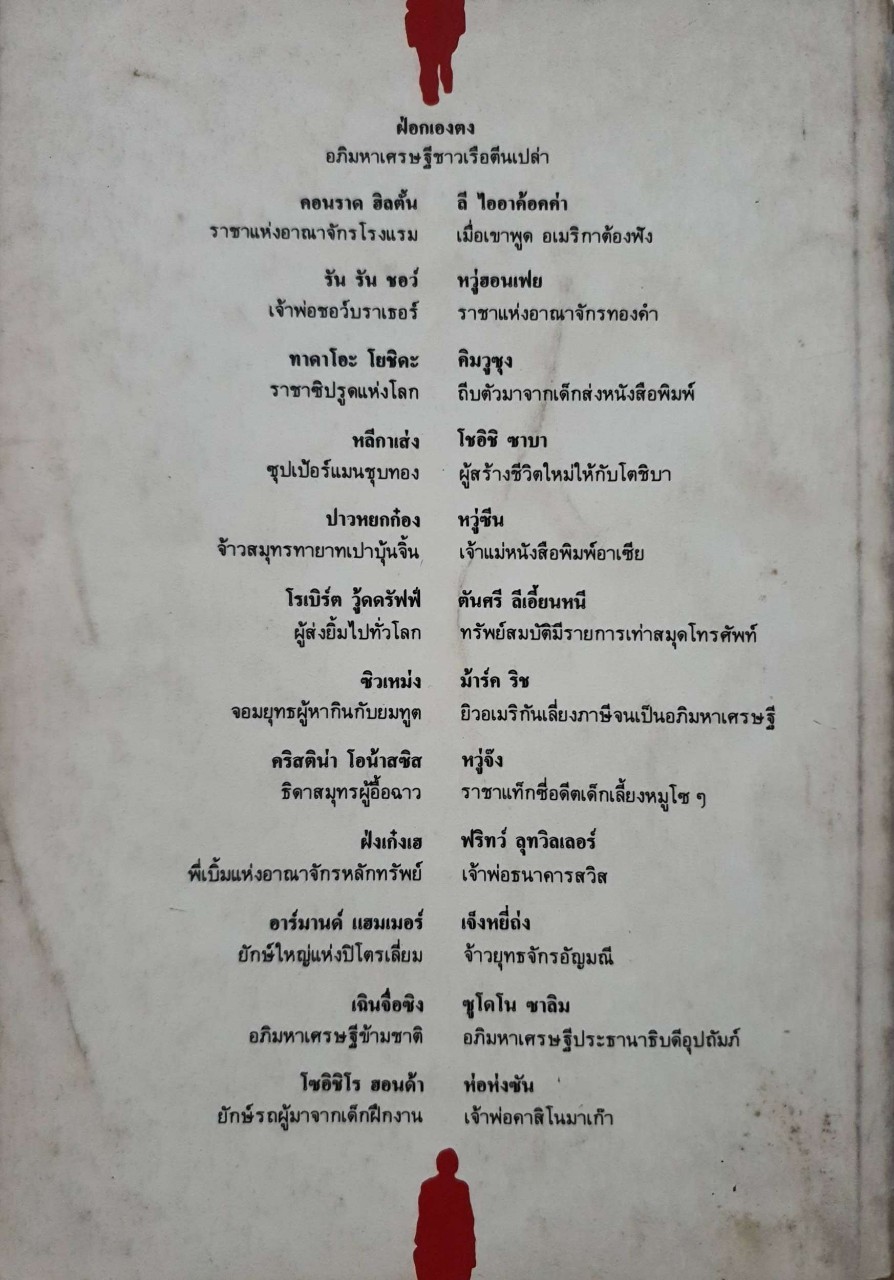 ฝ่อกเองตง
อภิมหาเศรษฐีชาวเรือตีนเปล่า
คอนราด ฮิลตั้น
ราชาแห่งอาณาจักรโรงแรม
ลี ไออาค้อคค่า
เมื่อเขาพูด อเมริกาต้องฟัง
รัน รัน ชอว์
เจ้าพ่อชอว์บราเธอร์
หวู่ฮอนเฟย
ราชาแห่งอาณาจักรทองคำ
ทาคาโอะ โยชิดะ
ราชาซิปรูดแห่งโลก
คิมวูซุง
ถีบตัวมาจากเด็กส่งหนังสือพิมพ์
หลีกาเส่ง
ซุปเป้อร์แมนชุบทอง
โชอิชิ ซาบา
ผู้สร้างชีวิตใหม่ให้กับโตชิบา
ปาวหยกก๋อง
จ้าวสมุทรทายาทเปาบุ้นจิ้น
หวู่ซีน
เจ้าแม่หนังสือพิมพ์อาเซีย
โรเบิร์ต วู้ดดรัฟฟ์
ผู้ส่งยิ้มไปทั่วโลก
ตันศรี ลีเอี้ยนหนี
ทรัพย์สมบัติมีรายการเท่าสมุดโทรศัพท์
ซิวเหม่ง
จอมยุทธผู้หากินกับยมทูต
ม้าร์ค ริช
ยิวอเมริกันเลี่ยงภาษีจนเป็นอภิมหาเศรษฐี
คริสติน่า โอน้าสซิส
ธิดาสมุทรผู้อื้อฉาว
หวู่จ๊ง
ราชาแท็กซี่อดีตเด็กเลี้ยงหมูโซ ๆ
ฝ่งเก๋งเฮ
พี่เบิ้มแห่งอาณาจักรหลักทรัพย์
ฟริทว์ ลุทวิลเลอร์
เจ้าพ่อธนาคารสวิส
อาร์มานด์ แฮมเมอร์
ยักษ์ใหญ่แห่งปิโตรเลี่ยม
เจ็งหยี่ถ่ง
จ้าวยุทธจักรอัญมณี
เฉินจื่อซิง
อภิมหาเศรษฐีข้ามชาติ
ซูโดโน ซาลิม
อภิมหาเศรษฐีประธานาธิบดีอุปถัมภ์
โซอิชิโร ฮอนด้า
ยักษ์รถผู้มาจากเด็กฝึกงาน
ห่อห่งซัน
เจ้าพ่อคาสิโนมาเก๊า